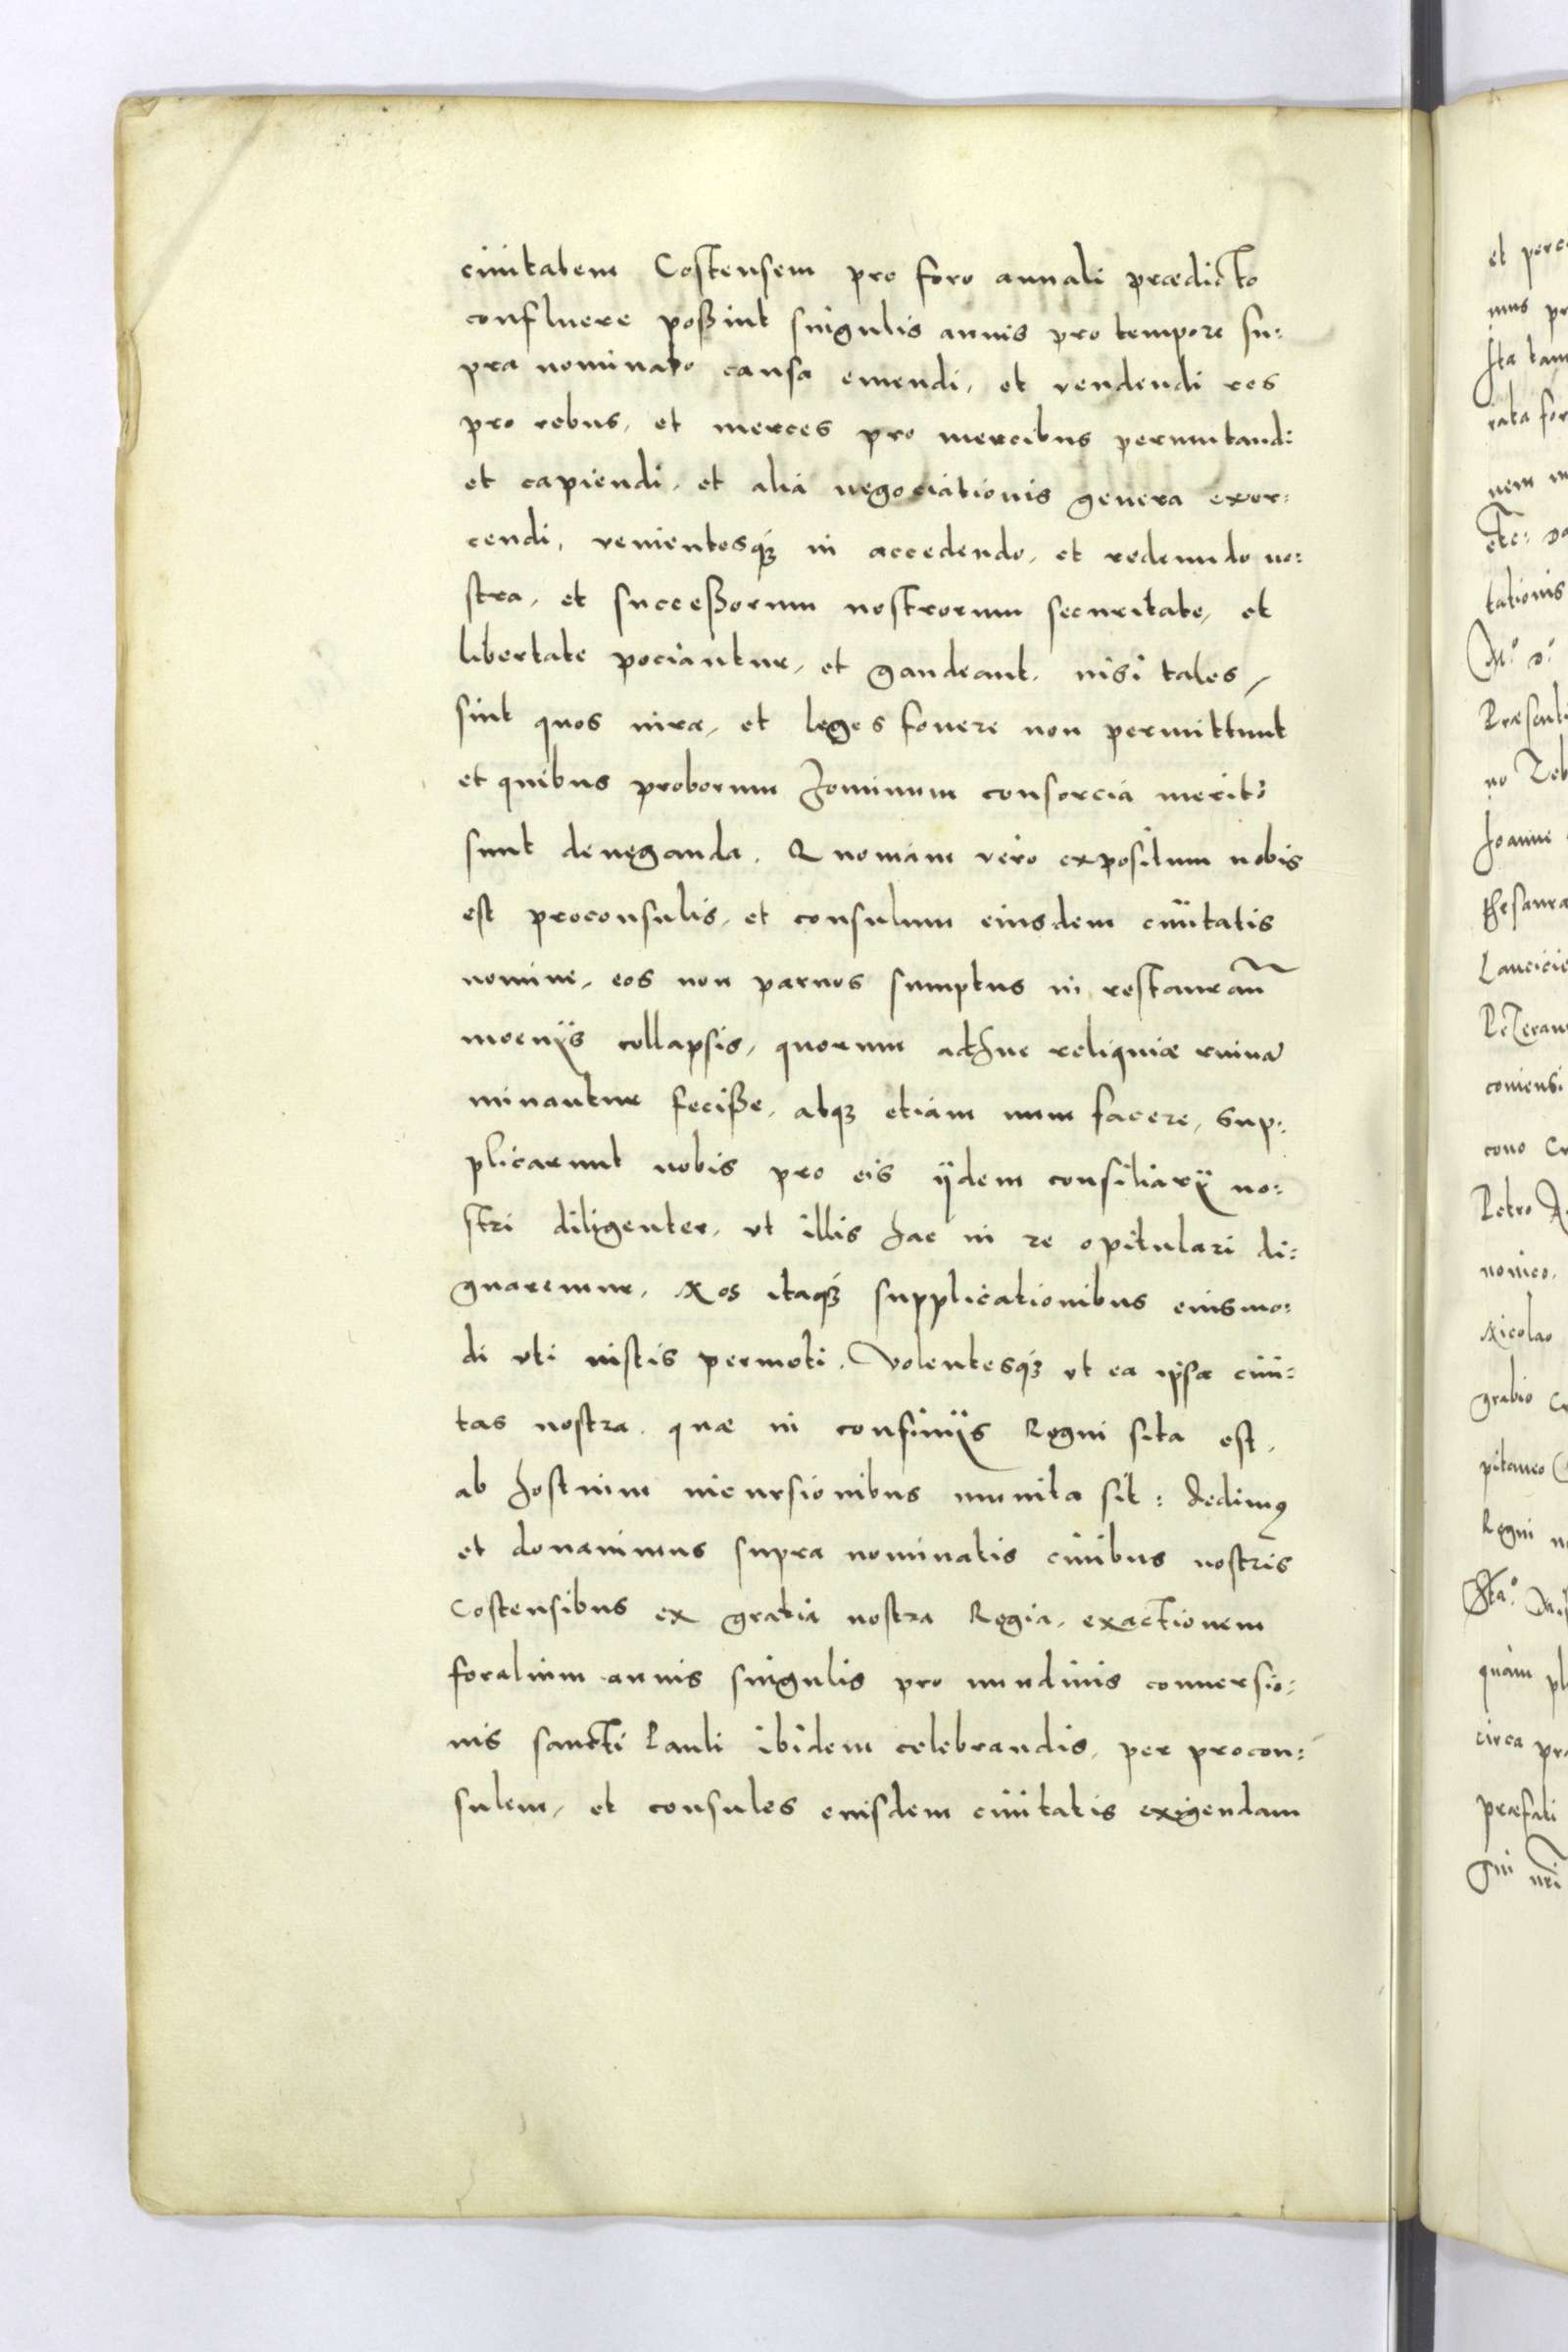 ciuitatem Costensem pro foro annali prædicto
confluere poßint singulis annis pro tempore su:
pra nominato causa emendi, et vendendi res
pro rebus, et merces pro mercibus permutandi
et capiendi, et alia negociationis genera exer:
cendi, venientesq3 in accedendo, et redeundo no:
stra, et succeßorum nostrorum securitate, et
libertate pociantur, et gaudeant. nisi tales,
sint quos iura, et leges fouere non permittunt
et quibus proborum hominum consorcia merito
sunt deneganda. Quoniam vero expositum nobis
est proconsulis, et consulum eiusdem ciuitatis
nomine, eos non paruos sumptus in restaurañ
moenijs collapsis, quorum adhuc reliquiæ ruinã
minantur feciße, atq3 etiam num facere, sup:
plicarunt nobis pro eis ijdem consiliarij no:
stri diligenter, vt illis hac in re opitulari di:
gnaremur. Nos itaq3 supplicationibus eiusmo:
di vti iustis permoti. Volentesq3 vt ea ipsa ciui:
tas nostra, quæ in confinijs Regni sita est,
ab hostium incursionibus munita sit: dedimus
et donauimus supra nominatis ciuibus nostris
Costensibus ex gratia nostra Regia, exactionem
foralium annis singulis pro nundinis conuersio:
nis sancti Pauli ibidem celebrandis, per procon:
sulem, et consules eiusdem ciuitatis exigendam
et
mus
Ita
rata
nem
etc: 
tationis
M.o D.o
no
Joanne
coniensi
cono
Petro
nonico.
Nicolao
grabio
pitaneo
Regni
quàm
circa
præfati
gni nri